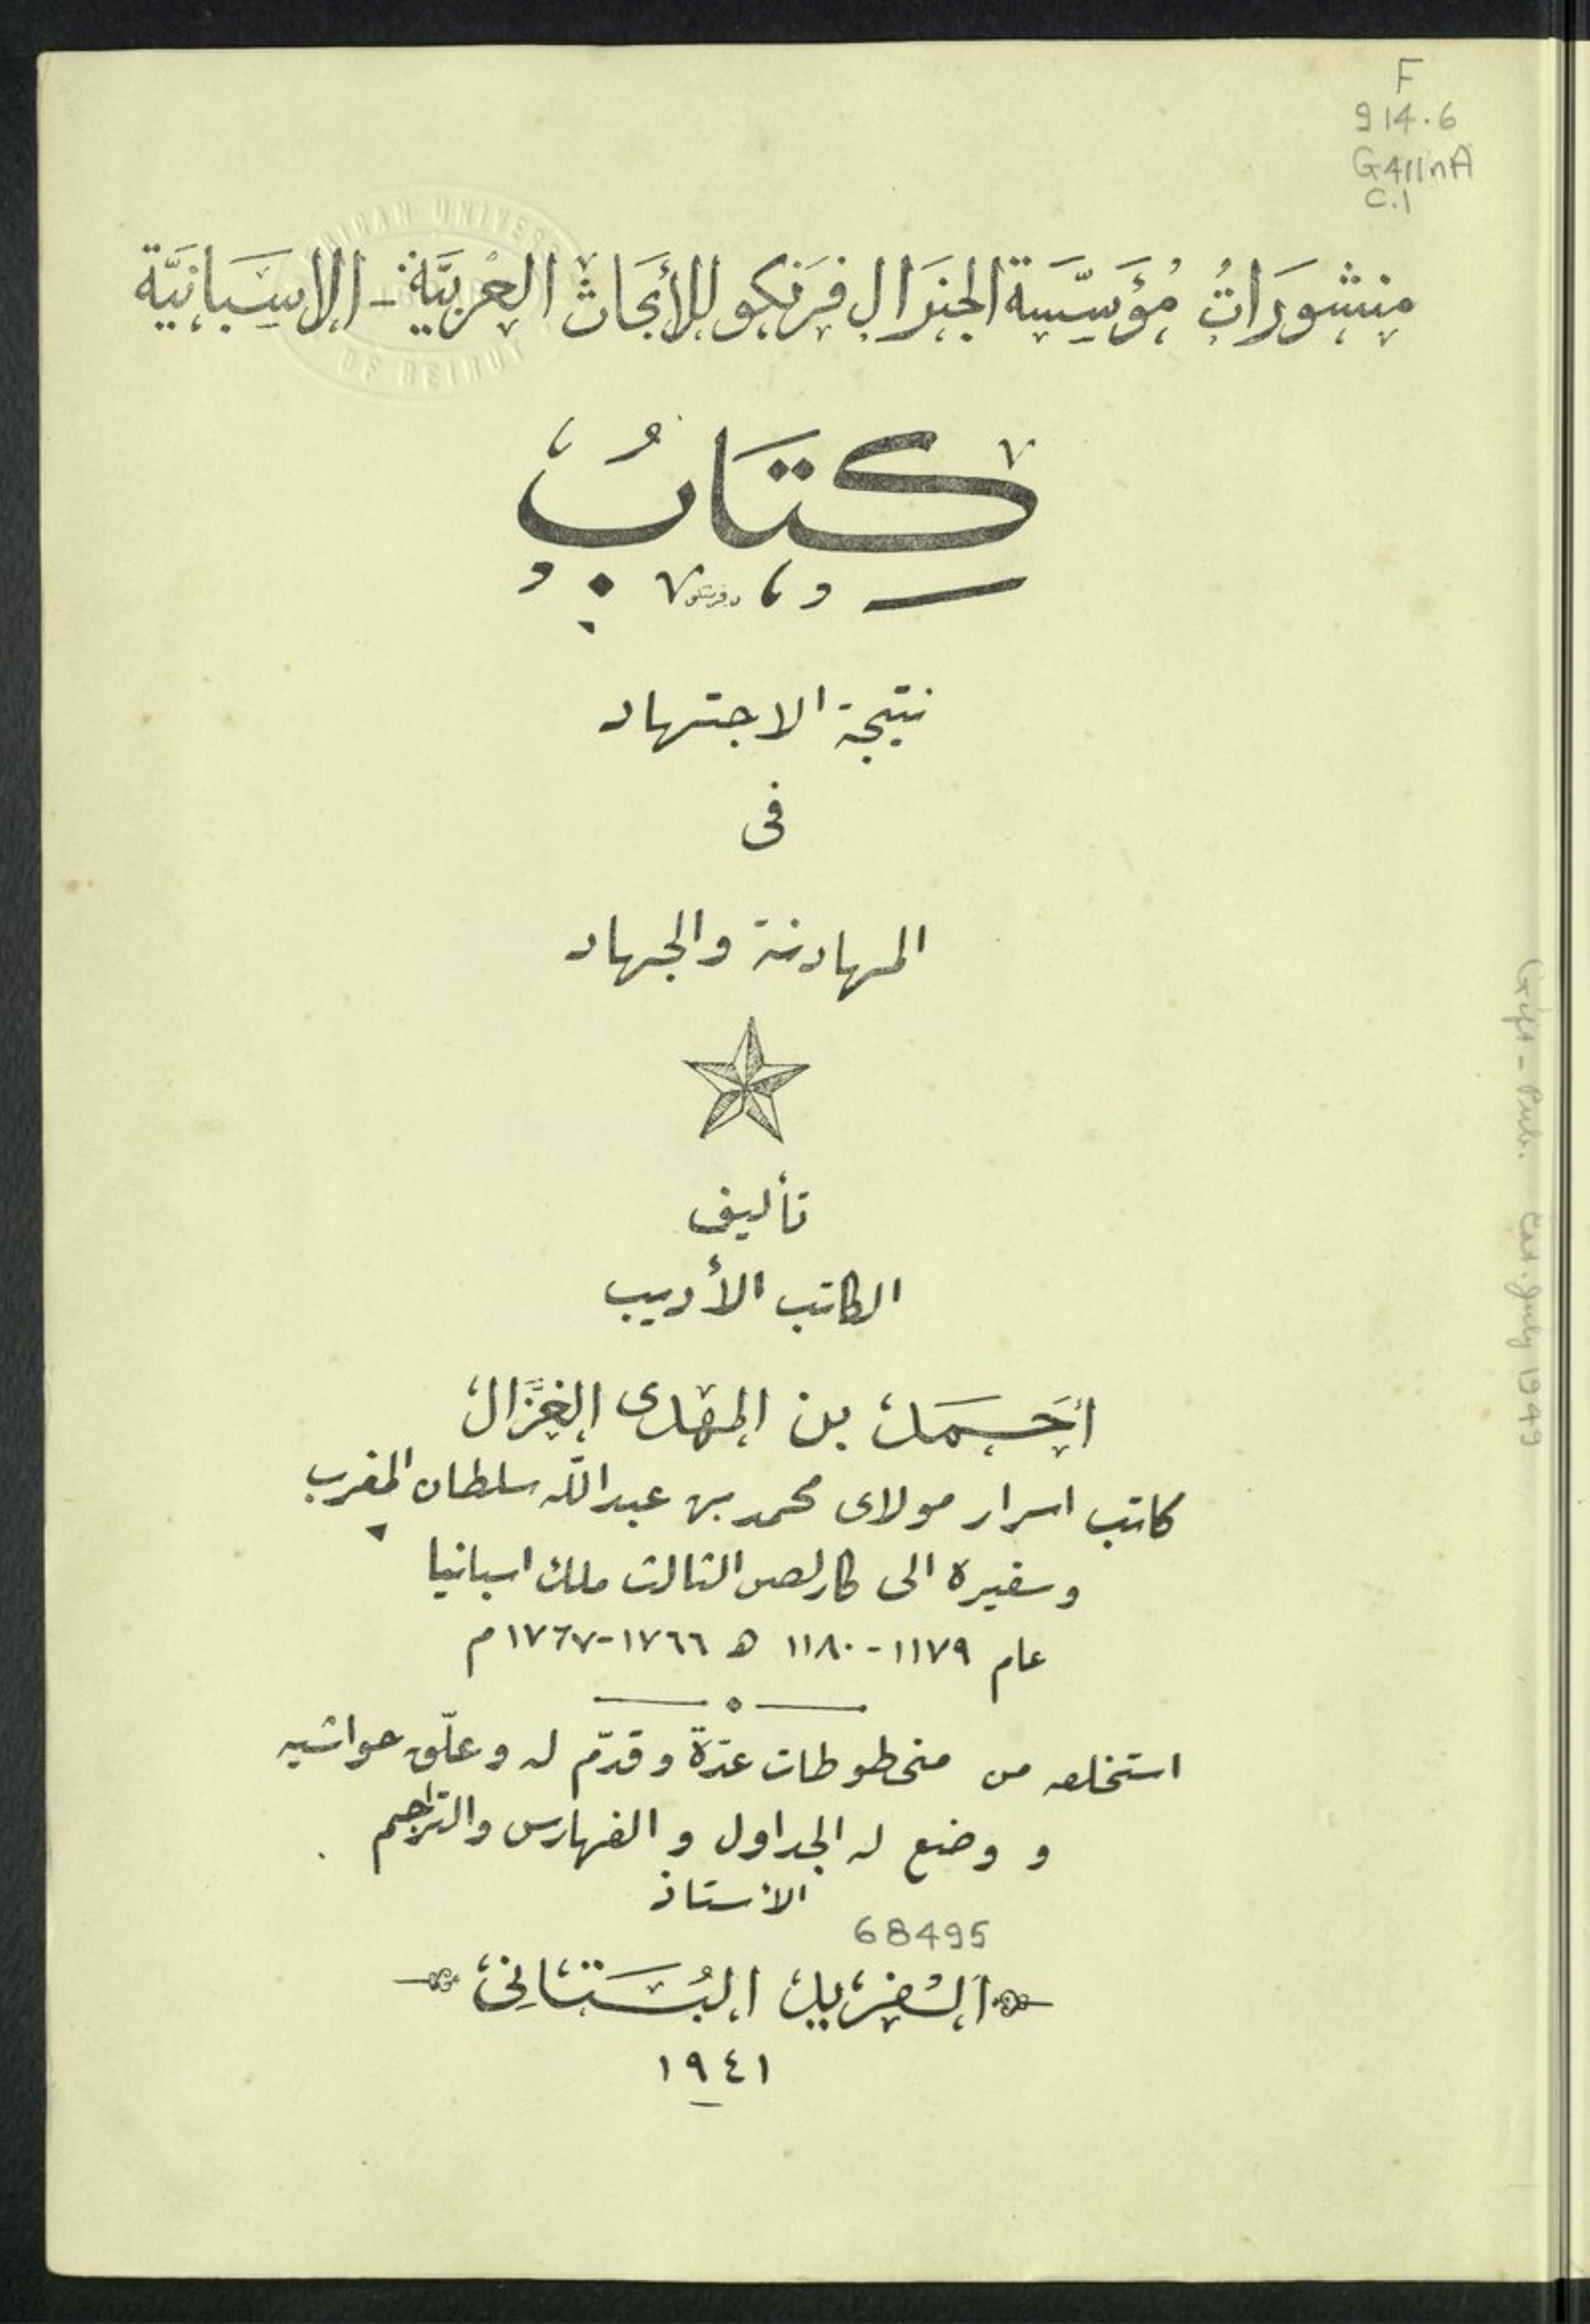 F
914.6
G411nA
C.1
AMERICAN UNIVERSITY
OF BEIRUT
منشورَاتُ مُؤَسَّسَة الجنرَال فرَنكو للأبحَاث العَربيَّة - الاسبَانيَّة
كتَابُ
نتيجة الاجتهاد
فى
المهادنة والجهاد
تأليف
الكاتب الأديب
أحَمَد بن المهدى الغزَّال
كاتب اسرار مولاى محمد بن عبد اللّه سلطان المغرب
وسفيره الى كارلص الثالث ملك اسبانيا
عام ١١٧٩-١١٨٠ ه ١٧٦٦-١٧٦٧ م
استخلصه من مخطوطات عدّة وقدّم له وعلّق حواشيه
و وضع له الجداول و الفهارس والتراجم
الأستاذ
68495
ألفريد البُستَانِى
١٩٤١
Gift - Publ. Cat. July 1949